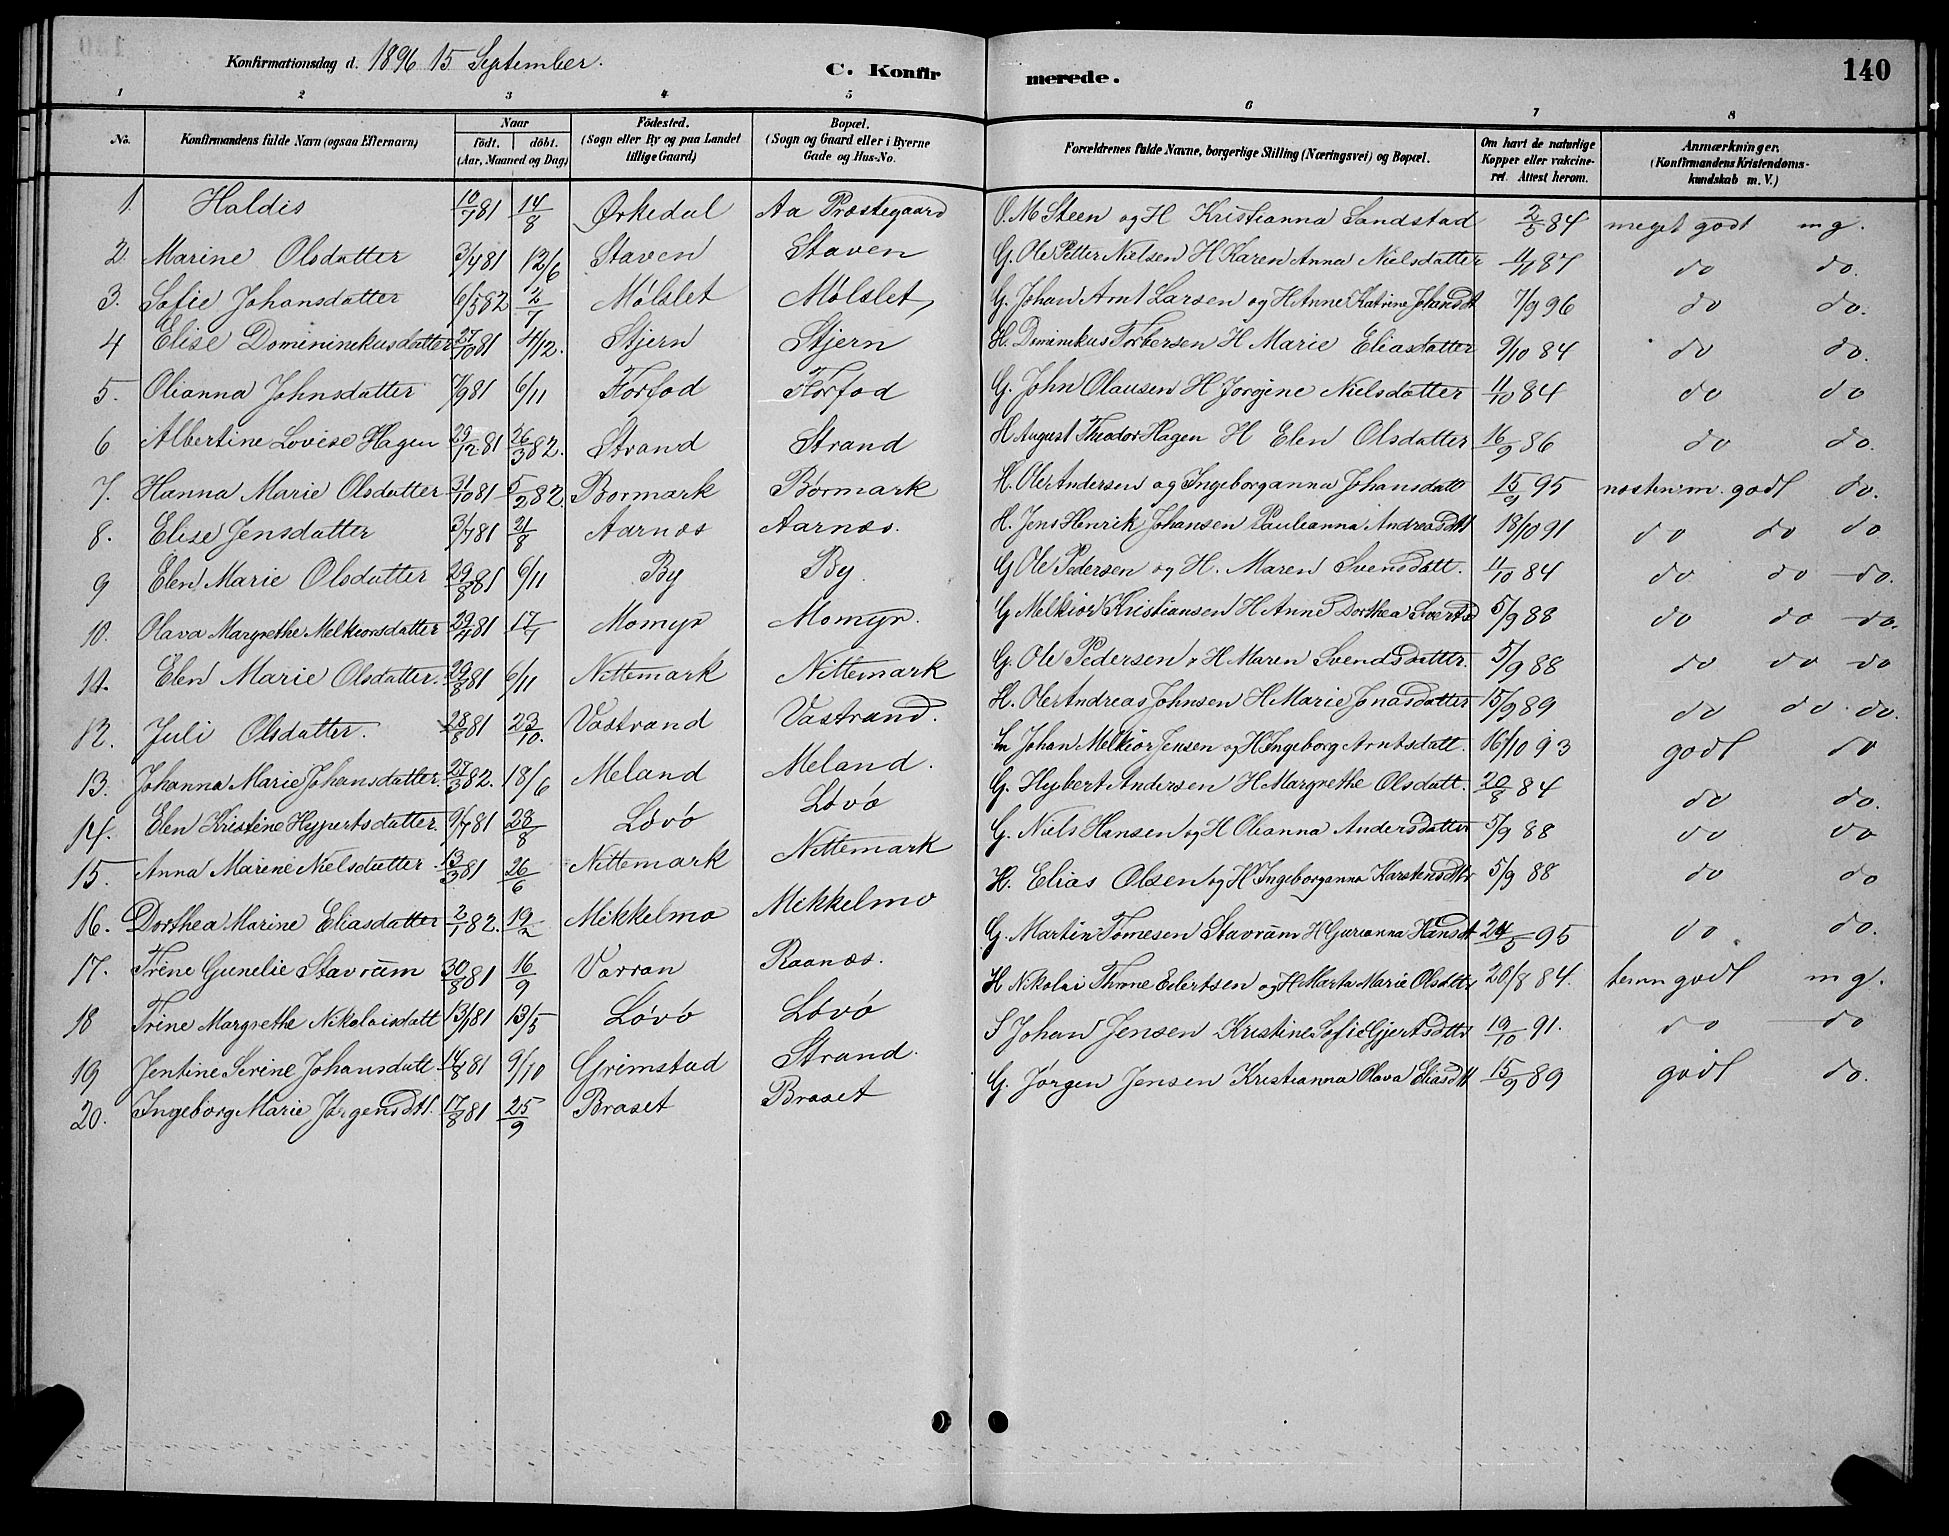 Konfirmationsdag d. 1896 15 September. C. Konfirmerede. 140
1 2 3 4 5 6 7 8
No. Konfirmandens fulde Navn (ogsaa Efternavn) Naar födt. döbt. (Aar, Maaned og Dag) Födested. (Sogn eller By og paa Landet tillige Gaard) Bopæl. (Sogn og Gaard eller i Byerne Gade og Hus-No. Forældrenes fulde Navne, borgerlige Stilling (Næringsvei) og Bopæl. Om havt de naturlige Kopper eller vakcineret. Attest herom. Anmærkninger. (Konfirmandens Kristendomskundskab m. V.)
1. Haldis 10/7 81 14/8 Ørkedal Aa Præstegaard O. M Steen og H Kristianna Sandstad 2/5 84 meget godt mg.
2. Marine Olsdatter 3/4 81 12/6 Staven Staven G. Ole Petter Nielsen H Karen Anna Nielsdatter 87 do do.
3. Sofie Johansdatter 6/5 82 2/7 Mølslet Mølslet, G. Johan Arnt Larsen og H Anne Katrine Johansdt 7/9 96 do do.
4 Elise Domininekusdatter 27/10 81 4/12. Stjern Stjern H. Dominikus Torbersen H Marie Eliasdatter 9/10 84 do do.
5. Olianna Johnsdatter 7/9 81 6/11 Forfod Forfod G. John Olausen H Jorgine Nielsdatter 11/10 84 do do
6 Albertine Lovise Hagen 29/12 81 26/3 82. Strand Strand H August Theodor Hagen H Elen Olsdatter 16/9 86 do do.
7. Hanna Marie Olsdatter 31/10 81 5/2 82. Bormark Børmark H. Ole Andersen og Ingeborganna Johansdatt 15/9 95 næsten m. godt do.
8. Elise Jensdatter 3/7 81 21/8 Aarnæs Aarnæs. H. Jens Henrik Johansen Paulianna Andreasdtt 18/10 91 do do do
9 Elen Marie Olsdatter 29/8 81 6/11 By By. G Ole Pedersen og H. Maren Svensdatt. 11/10 84 do do do.
10. Olava Margrethe Melkiorsdatter 29/4 81 17/7 Momyr Momyr. G Melkior Kristiansen H Anne Dorthea 5/9 88 do do do.
11. Elen Marie Olsdatter. 29/8 81 6/11 Nittemark Nittemark G. Ole Pedersen H Maren Svendsdatter. 5/9 88 do do do
12. Juli Olsdatter. 28/8 81 23/10. Vastrand Vastrand. H. Ole Andreas Johnsen H Marie Jonasdatter 15/9 89 do do. do.
13. Johanna Marie Johansdatter. 27/3 82. 18/6 Meland Meland. Johan Melkior Jensen og H Ingeborg Arntsdatt. 16/10 93 godt do
14. Elen Kristine Heypertsdatter. 9/7 81 28/8 Løvø Løvø G. Heybert Andersen H Margrethe Olsdatt. 20/8 84 do do.
15. Anna Marine Nielsdatter 13/3 81 26/6 Nittemark Nittemark G. Niels Hansen og H Olianna Andersdatter 5/9 88 do do
16. Dorthea Marine Eliasdatter 2/1 82. 19/2 Mikkelmo Mikkelmo H. Elias Olsen og H Ingeborganna Karstensdtr 5/9 88 do do
17. Trine Gunelie Stavrum 30/8 81 16/9 Vorran Raanæs. G. Martin Tomesen Stavrum H Gurianna Hansdt 24/5 95 do do.
18 Trine Margrethe Nikolaisdatt 13/1 81 13/5 Løvø Løvø H Nikolai Eilertsen og H Marta Marie Olsdttr 20/8 84. temn godt mg.
19 Jentine Serine Johansdatt. 14/8 81 9/10 Grimstad Strand. S Johan Jensen Kristine Sofie Gjertsdttr 19/10 91. do do
20. Ingeborg Marie Jørgensdtt. 17/8 81 25/9 Braset Braset G. Jørgen Jensen Kristianna Olava Eliasdtt 15/9 89 godt do.